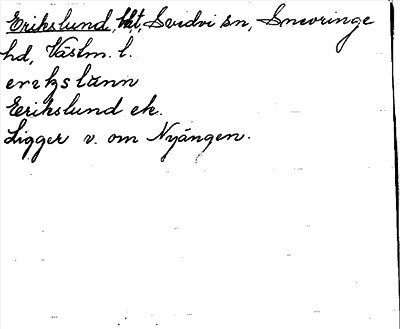 Erikslund, hkt, Svedvi sn, Snevringe
hd, Västm. l.
erekslünn
Eerikslund ek.
Ligger v. om Nyängen.